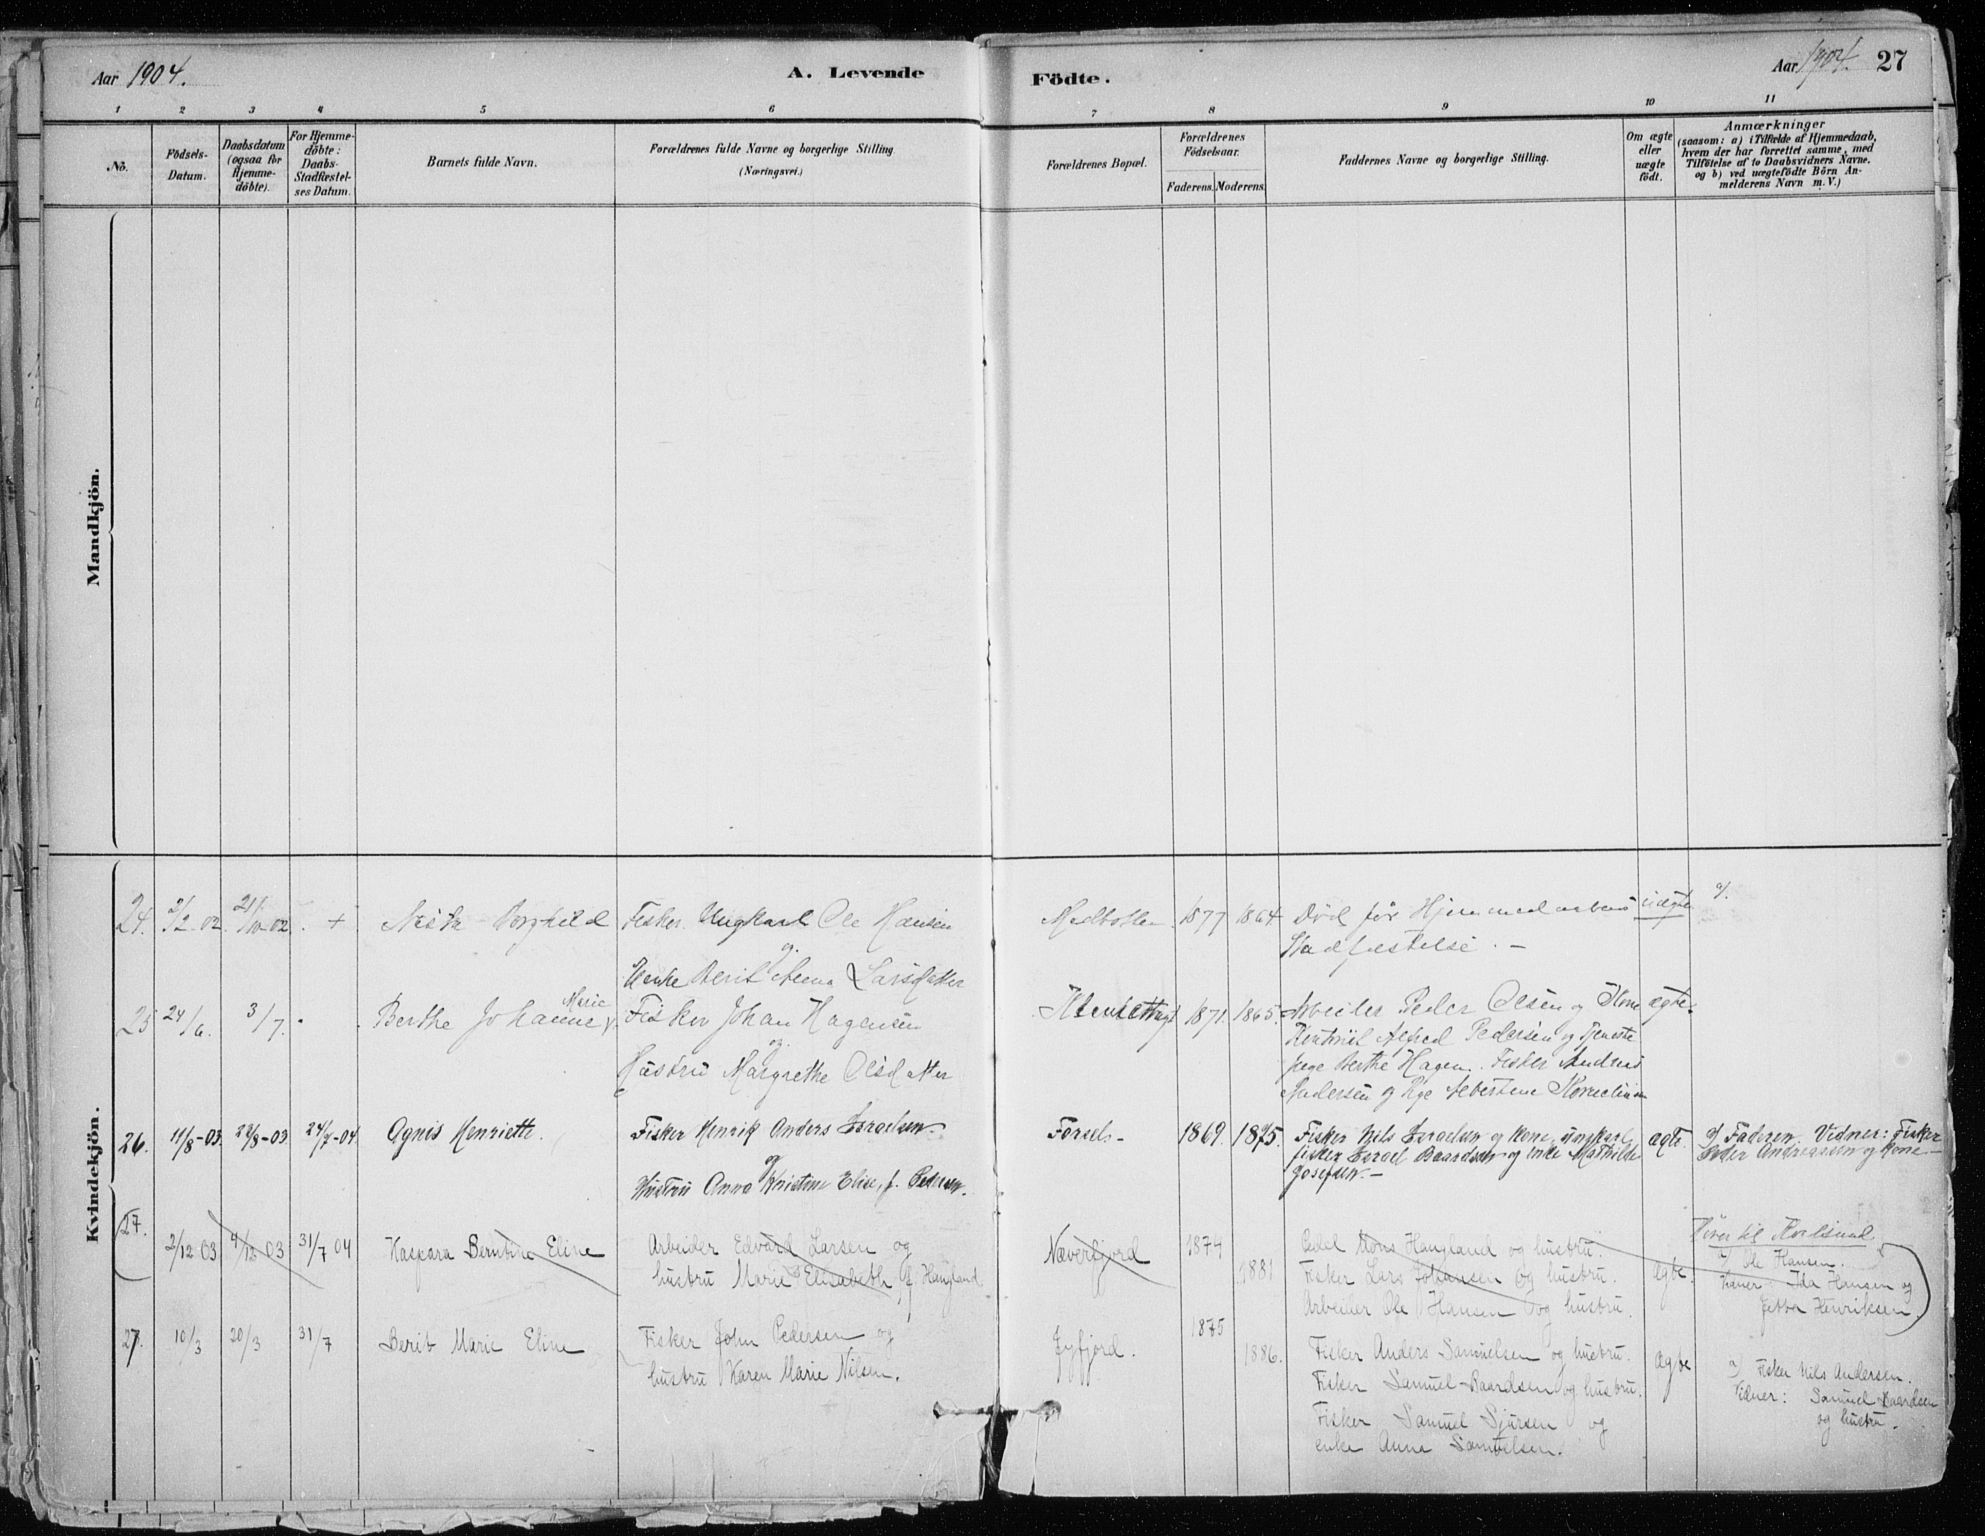 Aar 1904.
A. Levende
Födte.
Aar 1904. 27
1 2 3 4 5 6 7 8 9 10 11
No.
Födsels-
Datum.
Daabsdatum
(ogsaa for
Hjemme-
döbte).
For Hjemme-
döbte:
Daabs-
Stadfæstel-
ses Datum.
Barnets fulde Navn.
Forældrenes fulde Navne og borgerlige Stilling
(Næringsvei.)
Forældrenes Bopæl.
Forældrenes
Födselsaar.
Faderens. Moderens.
Faddernes Navne og borgerlige Stilling.
Om ægte
eller
uægte
födt.
Anmærkninger
(saasom: a) i Tilfælde af Hjemmedaab,
hvem der har forrettet samme, med
Tilföielse af to Daabsvidners Navne.
og b) ved uægtefödte Börn An-
melderens Navn m. V.)
Mandkjön.
Kvindekjön.
24. 2/2 02 21/10 02 + Borghild Fisker Ungkarl Ole Hansen 1877 1864 Död för Hjemmedaabens uægte
og Stadfæstelse. –
Enke Berit Anna Larsdatter
25 24/6 3/7 Berthe Johanne Marie Fisker Johan Hagensen 1871 1865 Arbeider Peder Olsen og Kone ægte
og Alfred Pedersen og Tjeneste
Hustru Margrethe Olsdatter pige Berthe Hagen. Fisker Anders
Andersen og Pige Albertine
26. 11/8-03 23/8-03 24/7-04 Agnis Henriette. Fisker Henrik Anders Israelsen Forsøl 1869. 1875. Fisker Nils Israelsen og Kone, ungkarl ægte. a) Faderen. Vidner: Fisker
og fisker Israel Baardsen og enke Mathilde Peder Andreassen og Kone
Hustru Anna Kristine Elise, f. Pedersen. Josefsen.
27. 2/12 03 4/12 03 31/7 04 Kaspara Berntine Eline Arbeider Edvard Larsen og Næverfjord 1874 Mons Haugland og hustru. Hører til Kvalsund.
hustru Marie Elisabeth f. Haugland 1881 Fisker Lars Johansen og hustru. ægte. a) Ole Hansen.
Arbeider Ole Hansen og hustru. Ida Hansen og
Henriksen.
27. 10/3 20/3 31/7 Berit Marie Eline Fisker John Pedersen og Jyfjord. 1875 1886. Fisker Anders Samuelsen og hustru. ægte a) Fisker Nils Andersen.
hustru Karen Marie Nilsen. Fisker Samuel Baardsen og hustru. Vidner: Samuel Baardsen
Fisker Samuel Sjursen og og hustru.
enke Anne Samuelsen.